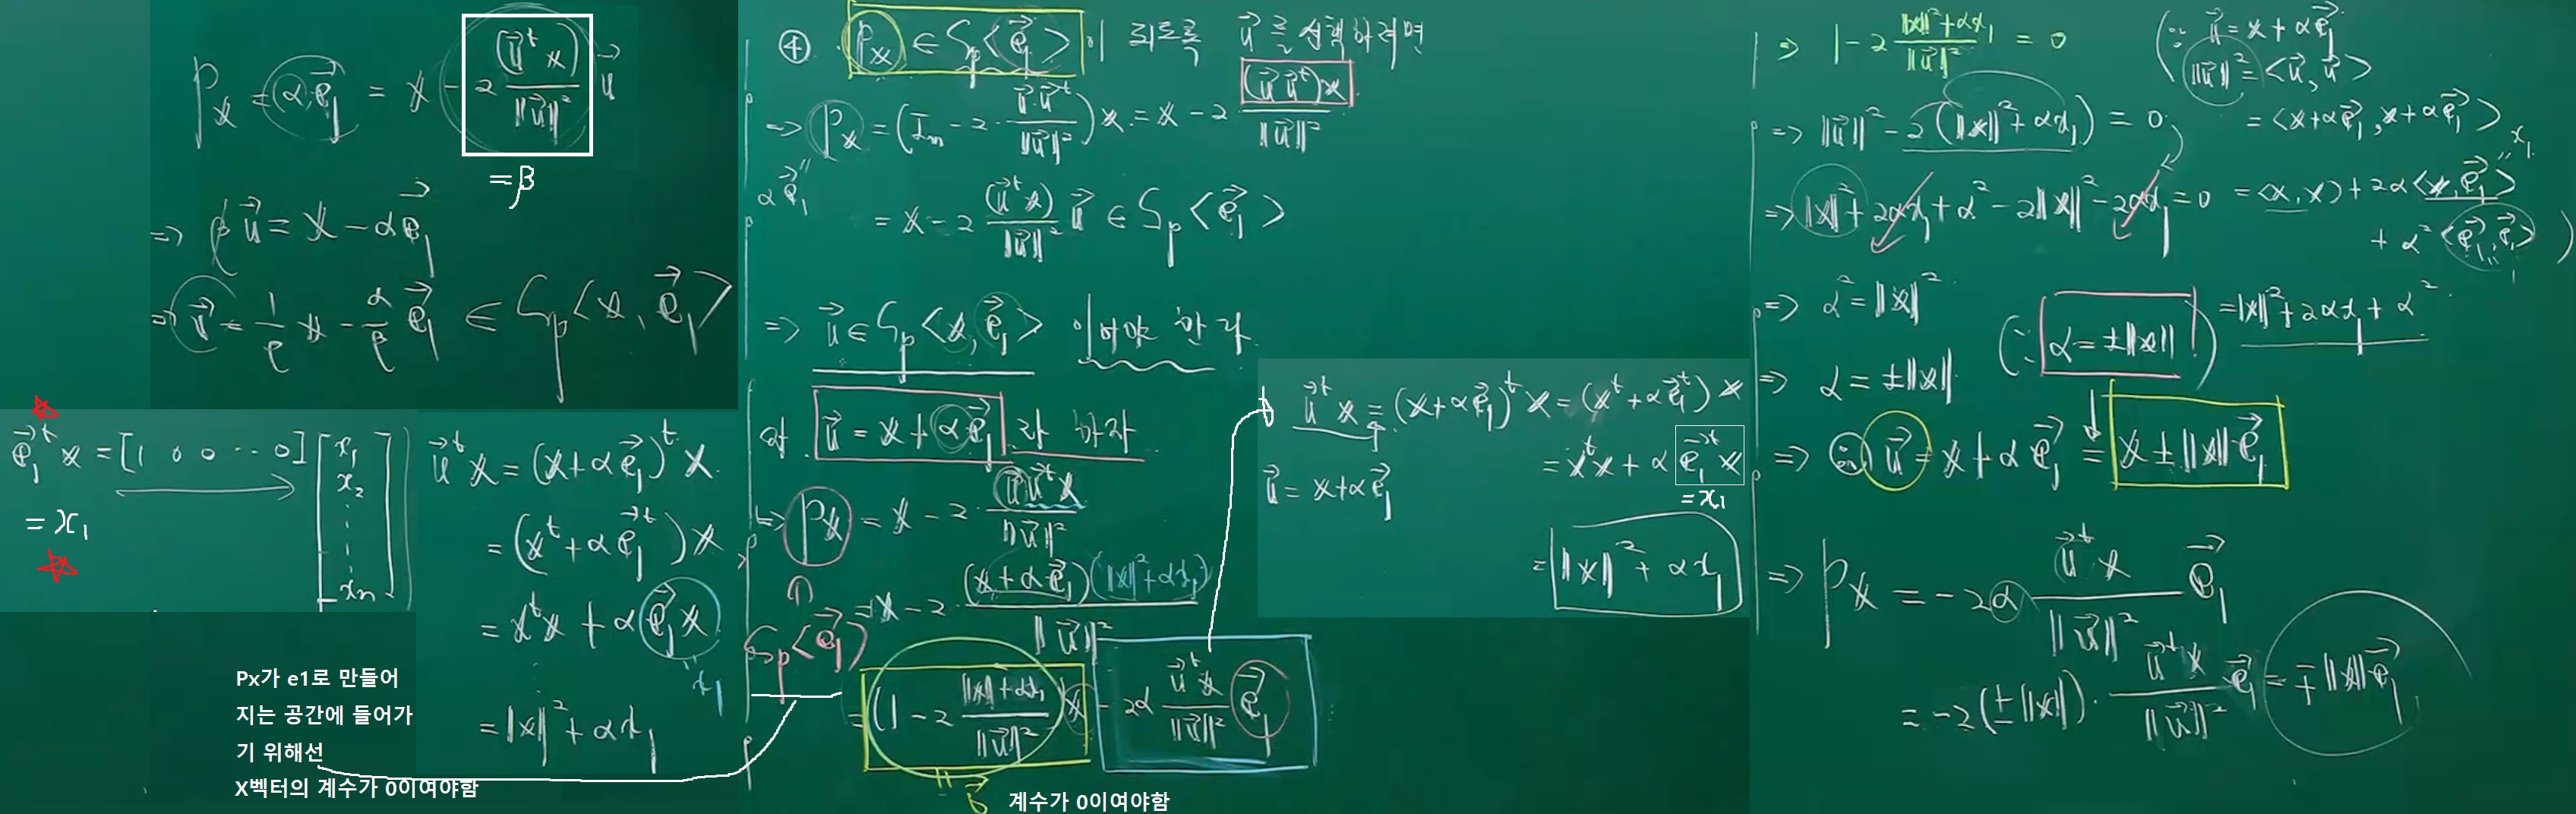 Px = αe⃗₁ = x - 2 (u⃗ᵗx)/‖u⃗‖² u⃗
= β
=> βu⃗ = x - αe⃗₁
=> u⃗ = 1/β x - α/β e⃗₁ ∈ Sp<x, e⃗₁>
e⃗₁ᵗ x = [1 0 0 ··· 0] [x₁ x₂ ⋮ xₙ]
= x₁
u⃗ᵗx = (x+αe⃗₁)ᵗ x
= (xᵗ + αe⃗₁ᵗ) x
= xᵗx + αe⃗₁x
" x₁
= ‖x‖² + αx₁
Px가 e1로 만들어
지는 공간에 들어가
기 위해선
X벡터의 계수가 0이여야함
④ Px ∈ Sp<e⃗₁> 이 되도록 u⃗를 선택하려면
=> Px = (Iₙ - 2 · u⃗·u⃗ᵗ/‖u⃗‖²) x = x - 2 (u⃗u⃗ᵗ)x/‖u⃗‖²
αe⃗₁ "
= x - 2 (u⃗ᵗx)/‖u⃗‖² u⃗ ∈ Sp<e⃗₁>
=> u⃗ ∈ Sp<x, e⃗₁> 이어야 한다.
u⃗ = x + αe⃗₁ 라 하자
=> Px = x - 2 · u⃗u⃗ᵗx/‖u⃗‖²
∩ Sp<e⃗₁>
= x - 2 · (x+αe⃗₁)(‖x‖²+αx₁)/‖u⃗‖²
= (1 - 2 (‖x‖+αx₁)/‖u⃗‖²) x - 2α u⃗ᵗx/‖u⃗‖² e⃗₁
계수가 0이여야함
u⃗ᵗx = (x+αe⃗₁)ᵗ x = (xᵗ+αe⃗₁ᵗ) x
u⃗ = x+αe⃗₁
= xᵗx + α e⃗₁ᵗx
= x₁
= ‖x‖² + αx₁
=> 1 - 2 (‖x‖²+αx₁)/‖u⃗‖² = 0
=> ‖u⃗‖² - 2(‖x‖²+αx₁) = 0
=> ‖x‖² + 2αx₁ + α² - 2‖x‖² - 2αx₁ = 0
=> α² = ‖x‖²
=> α = ±‖x‖
(∵ u⃗ = x + αe⃗₁
‖u⃗‖² = <u⃗, u⃗>
= <x+αe⃗₁, x+αe⃗₁>
= <x, x> + 2α<x, e⃗₁>
" x₁
+ α² <e⃗₁, e⃗₁> )
" 1
= ‖x‖² + 2αx₁ + α²
(∵ α = ±‖x‖)
=> ∴ u⃗ = x + αe⃗₁ = x ± ‖x‖e⃗₁
=> Px = -2α u⃗ᵗx/‖u⃗‖² e⃗₁
= -2(±‖x‖) · u⃗ᵗx/‖u⃗‖² e⃗₁ = ∓‖x‖e⃗₁